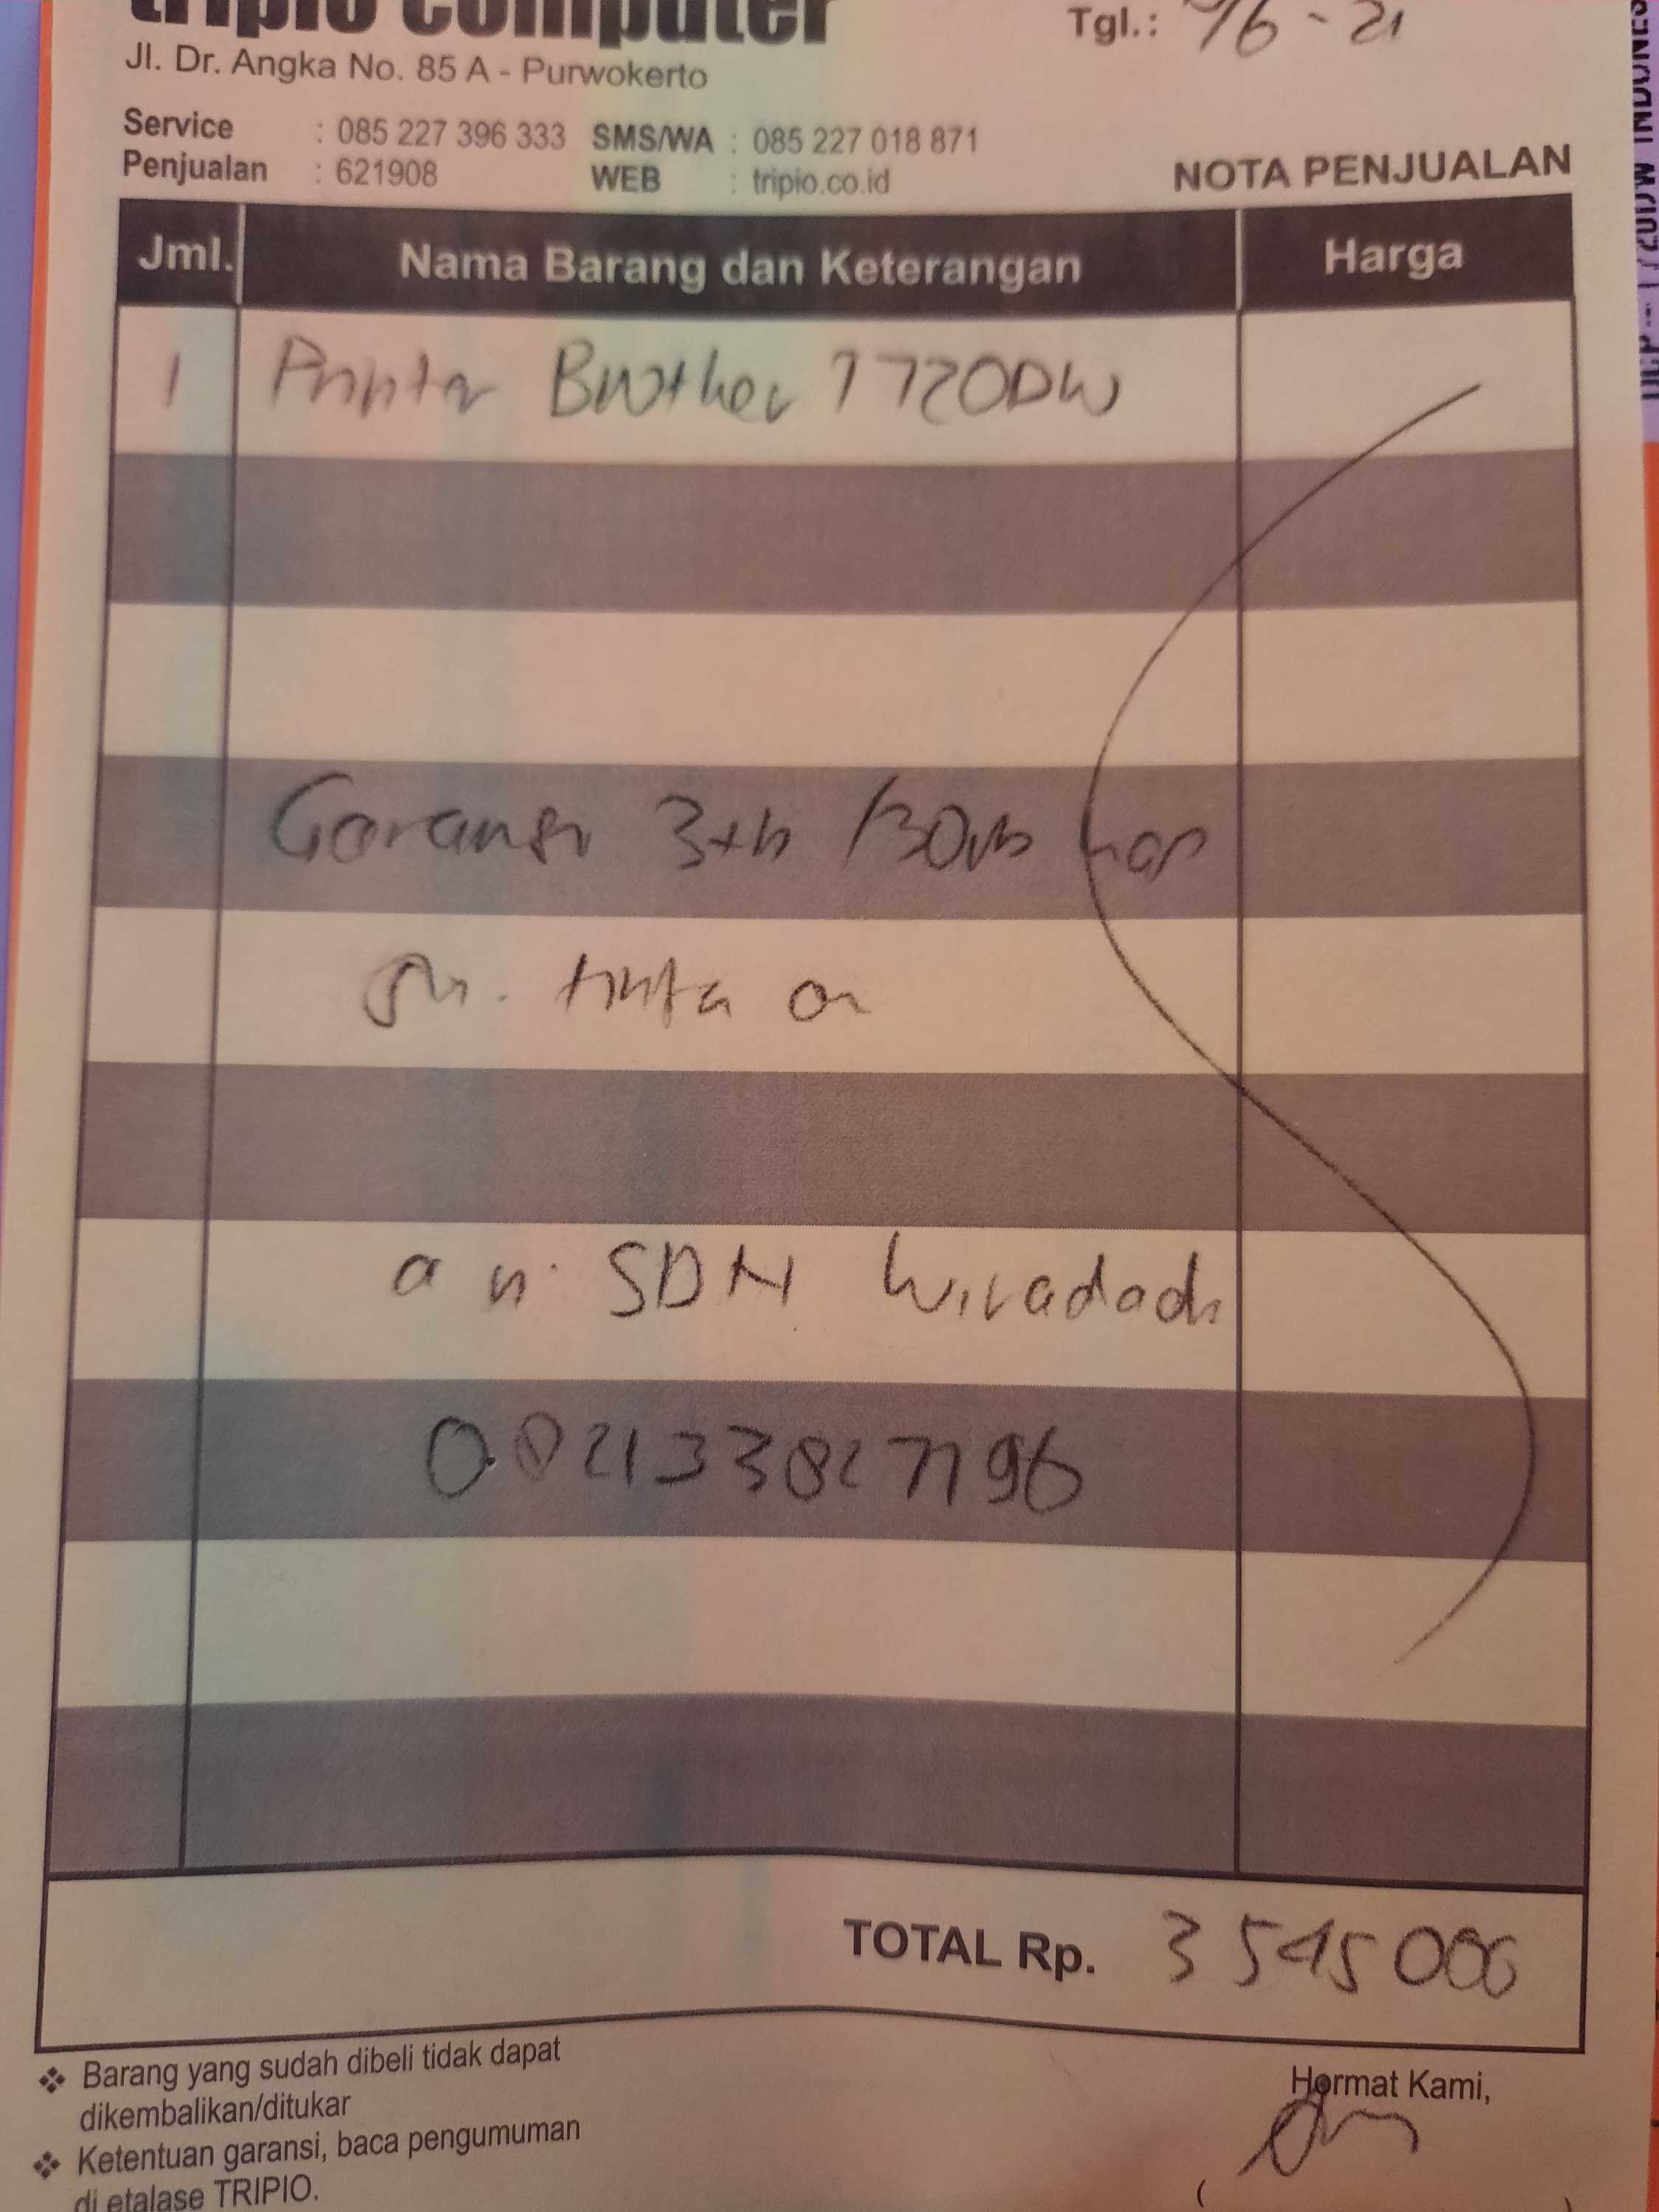 tripio computer
Tgl.: 4/6 - 21
Jl. Dr. Angka No. 85 A - Purwokerto
Service : 085 227 396 333 SMS/WA : 085 227 018 871
Penjualan : 621908 WEB : tripio.co.id
NOTA PENJUALAN
Jml. Nama Barang dan Keterangan Harga
1 Printer Brother T720DW
Garansi 3th /30rb
tinta
a n. SDN Wiradadi
082133827196
TOTAL Rp. 3545000
❖ Barang yang sudah dibeli tidak dapat
dikembalikan/ditukar
❖ Ketentuan garansi, baca pengumuman
di etalase TRIPIO.
Hormat Kami,